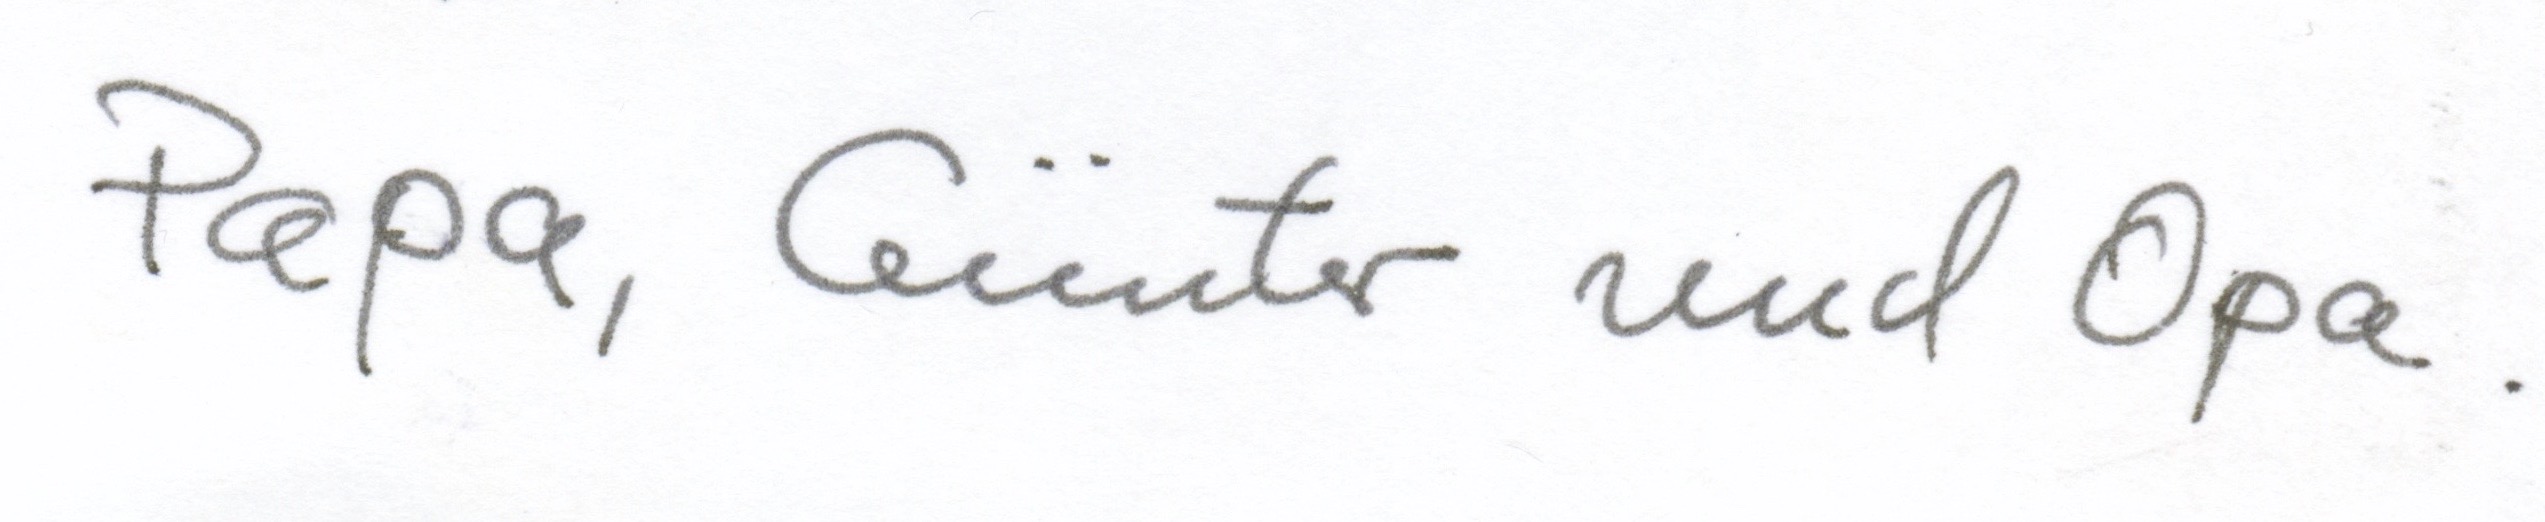 Papa, Günter und Opa.